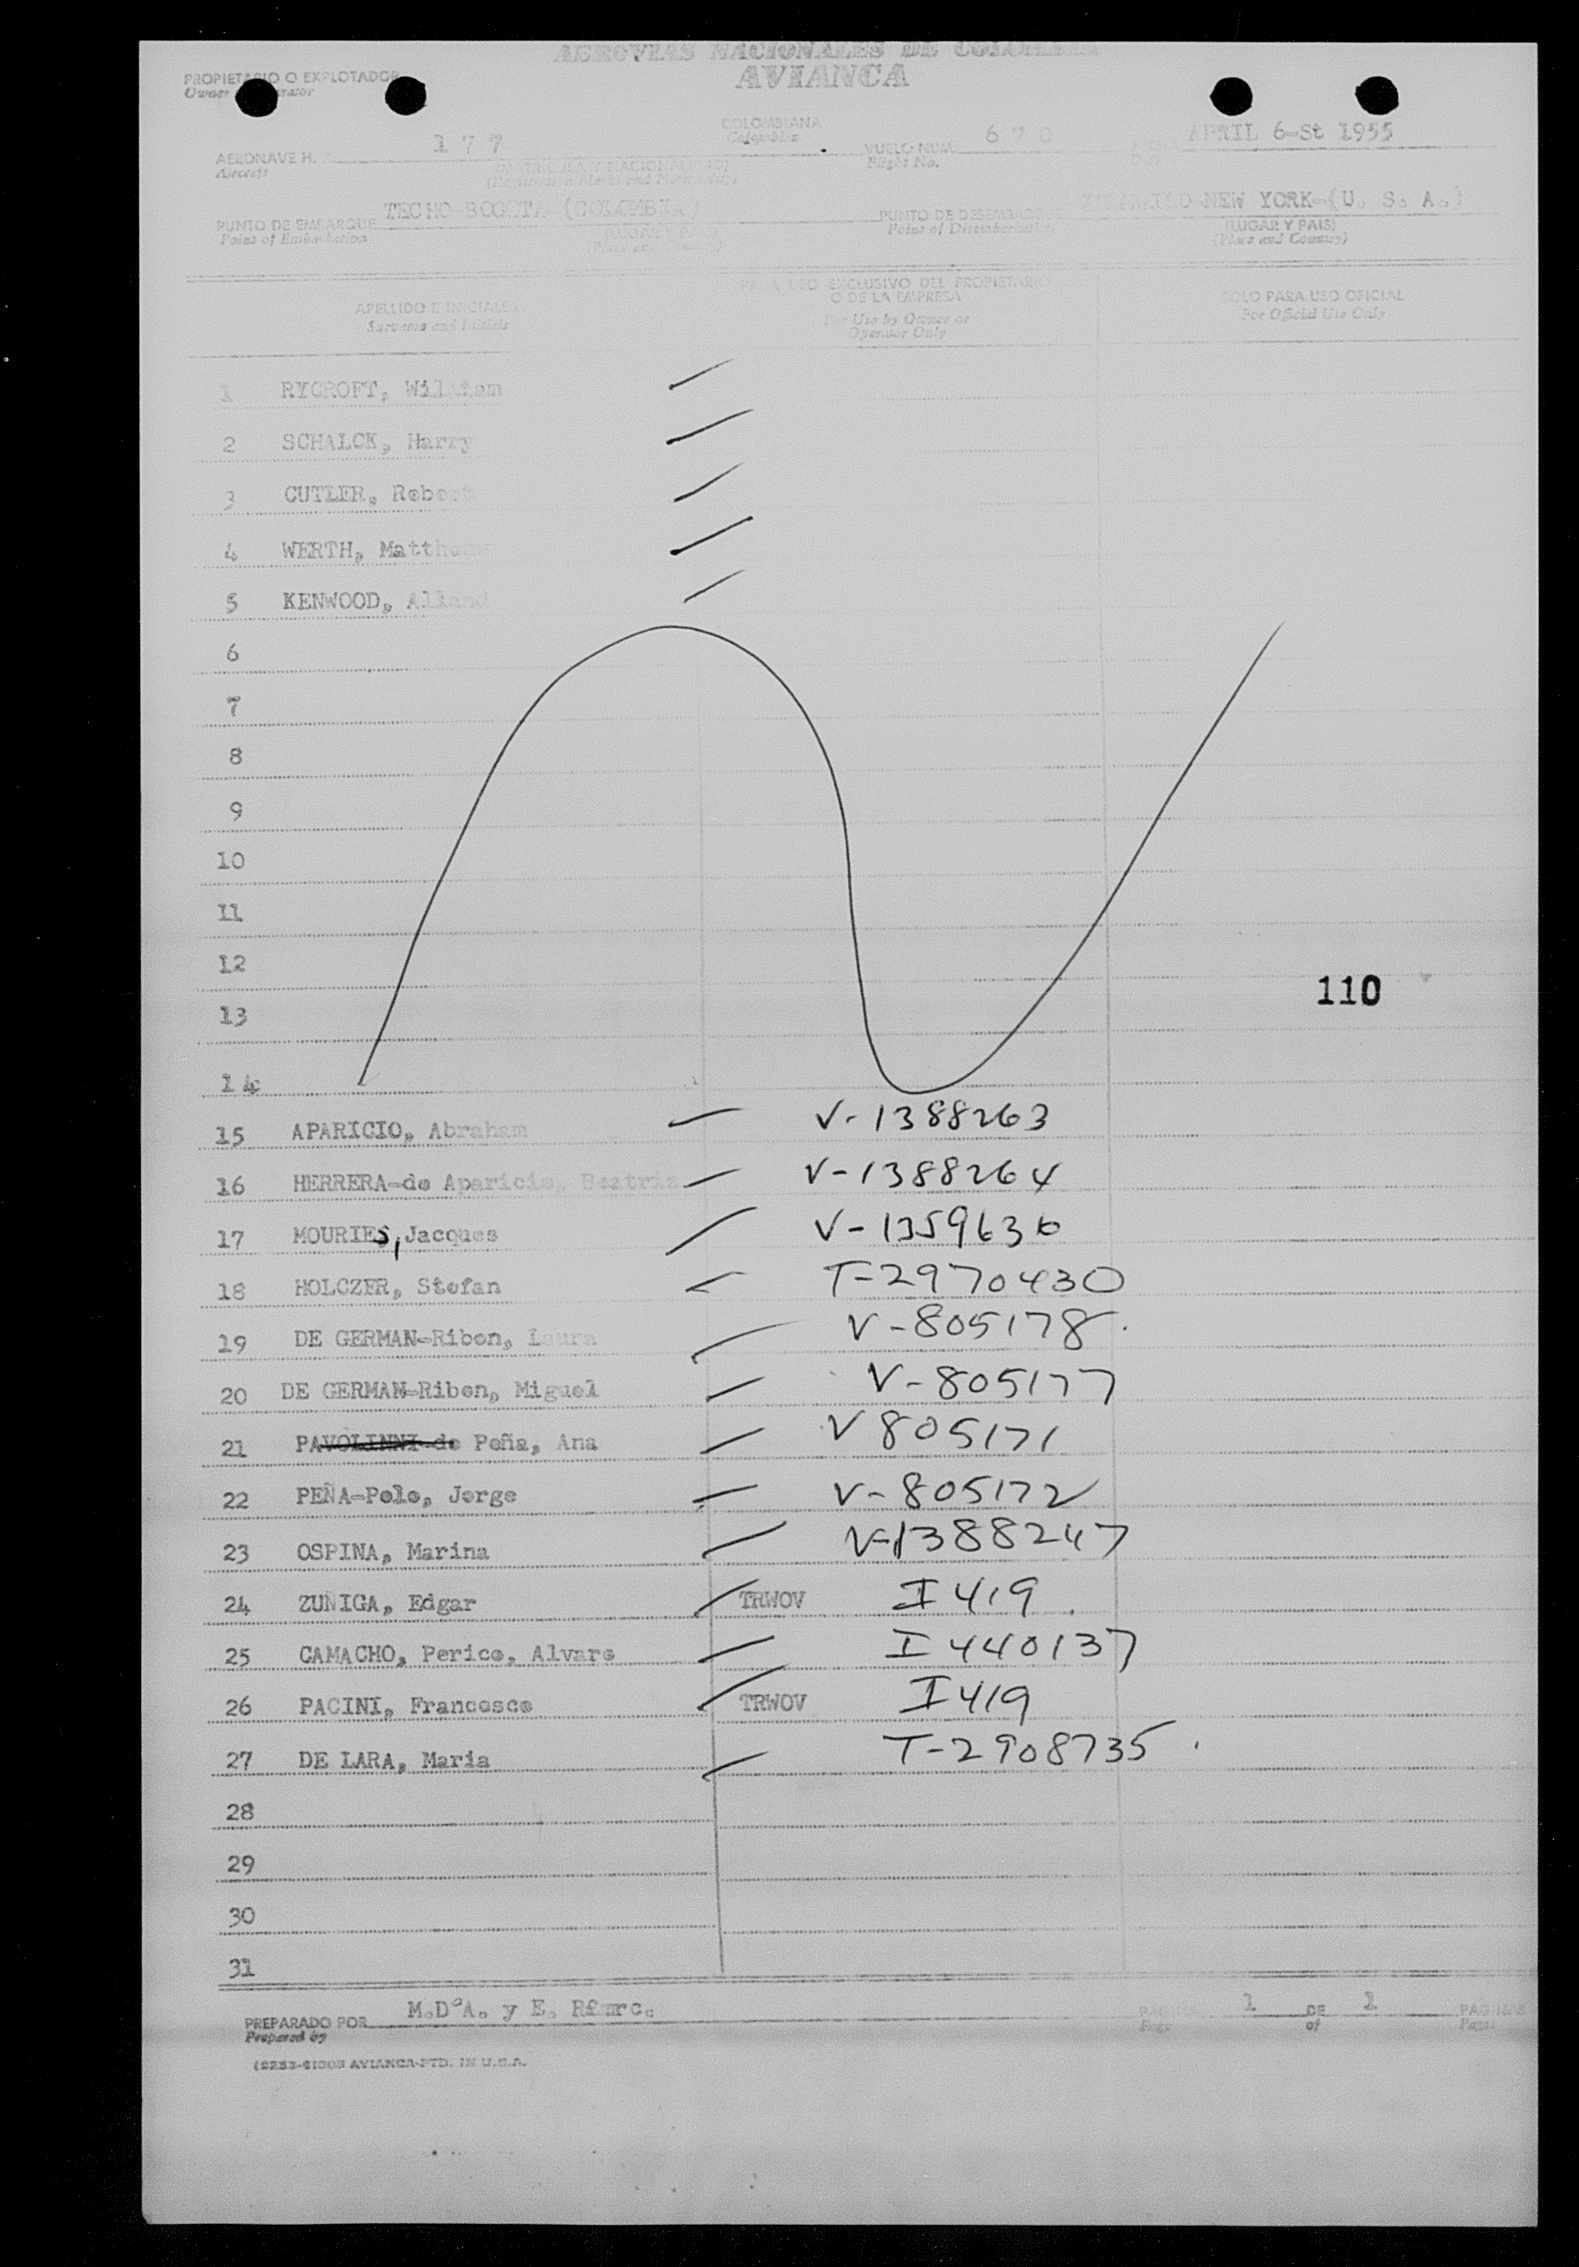 AEROVIAS NACIONALES DE COLOMBIA
AVIANCA
PROPIETARIO O EXPLOTADOR
Owner
COLOMBIANA
Colombian
AERONAVE H. 177 VUELO NUM. 670 APRIL 6-St 1955
Aircraft Flight No.
PUNTO DE EMBARQUE TECHO-BOGOTA (COLOMBIA) PUNTO DE DESEMBARQUE NEW YORK-(U. S. A.)
Point of Embarkation Point of Disembarkation (LUGAR Y PAIS)
(Place and Country)
APELLIDO E INICIALES USO EXCLUSIVO DEL PROPIETARIO SOLO PARA USO OFICIAL
Surname and Initials O DE LA EMPRESA For Official Use Only
For Use by Owner or
Operator Only
1 RYCROFT, William
2 SCHALCK, Harry
3 CUTLER, Robert
4 WERTH,
5 KENWOOD,
6
7
8
9
10
11
12
110
13
14
15 APARICIO, Abraham V-1388263
16 HERRERA-de Aparicio, Beatriz V-1388264
17 MOURIES, Jacques V-1359636
18 HOLCZER, Stefan T-2970430
19 DE GERMAN-Ribon, Laura V-805178
20 DE GERMAN-Ribon, Miguel V-805177
21 PAVOLINNI-de Peña, Ana V 805171
22 PEÑA-Polo, Jorge V-805172
23 OSPINA, Marina V-1388247
24 ZUÑIGA, Edgar TRWOV I 419
25 CAMACHO, Perico, Alvaro I 440137
26 PACINI, Francesco TRWOV I 419
27 DE LARA, Maria T-2908735
28
29
30
31
PREPARADO POR M.D'A. y E. PAGINA 1 DE 1 PAGINAS
Prepared by Page of
AVIANCA-PTD. IN U.S.A.